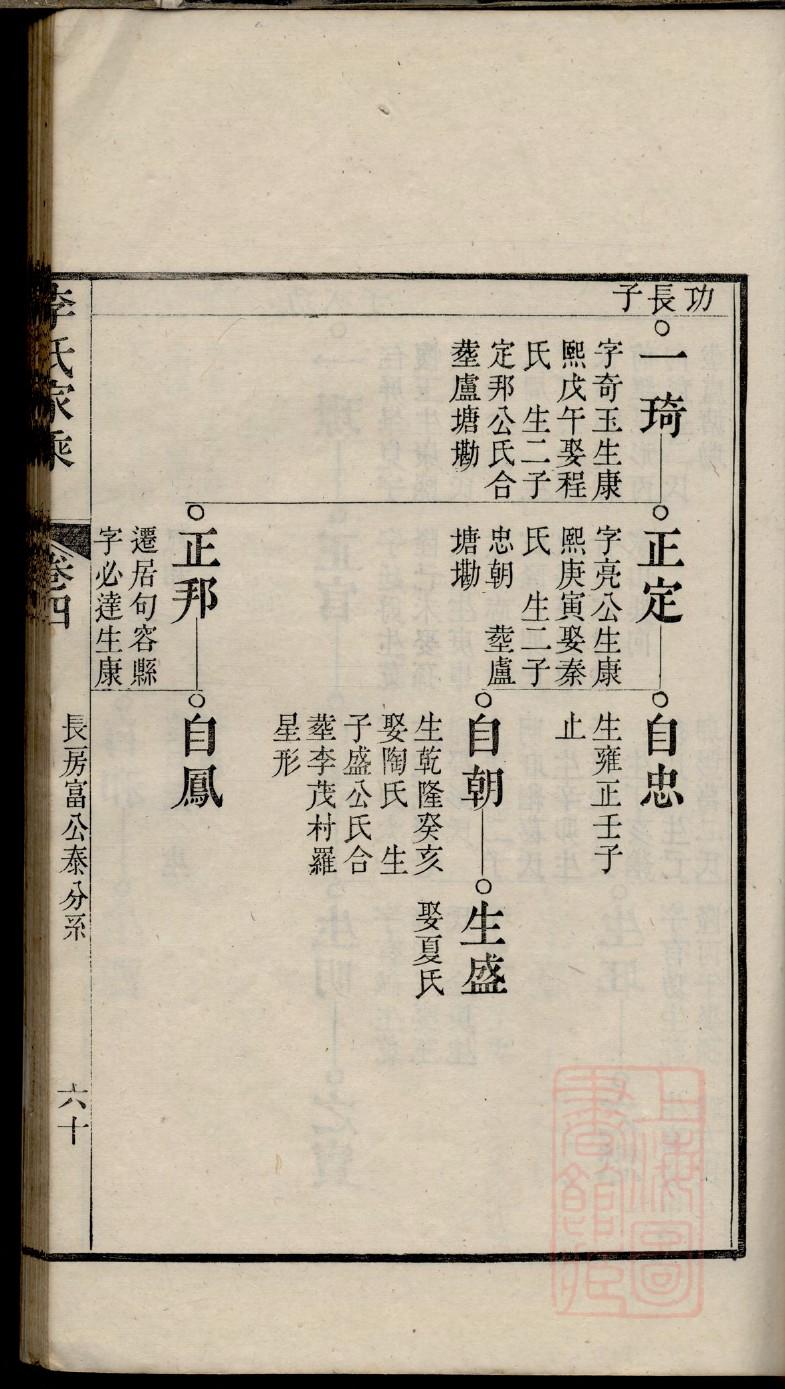 功長子
一琦
字奇玉生康
熙戊午娶程
氏　生二子
定邦公氏合
塟盧塘墈
正定
字亮公生康
熙庚寅娶秦
氏　生二子
忠朝　塟盧
塘墈
自忠
生雍正壬子
止
自朝
生乾隆癸亥
娶陶氏　生
子盛公氏合
塟李茂村羅
星形
生盛
娶夏氏
正邦
遷居句容縣
字必達生康
自鳳
李氏家乘
卷四
長房富公泰分系
六十
上海圖書館藏